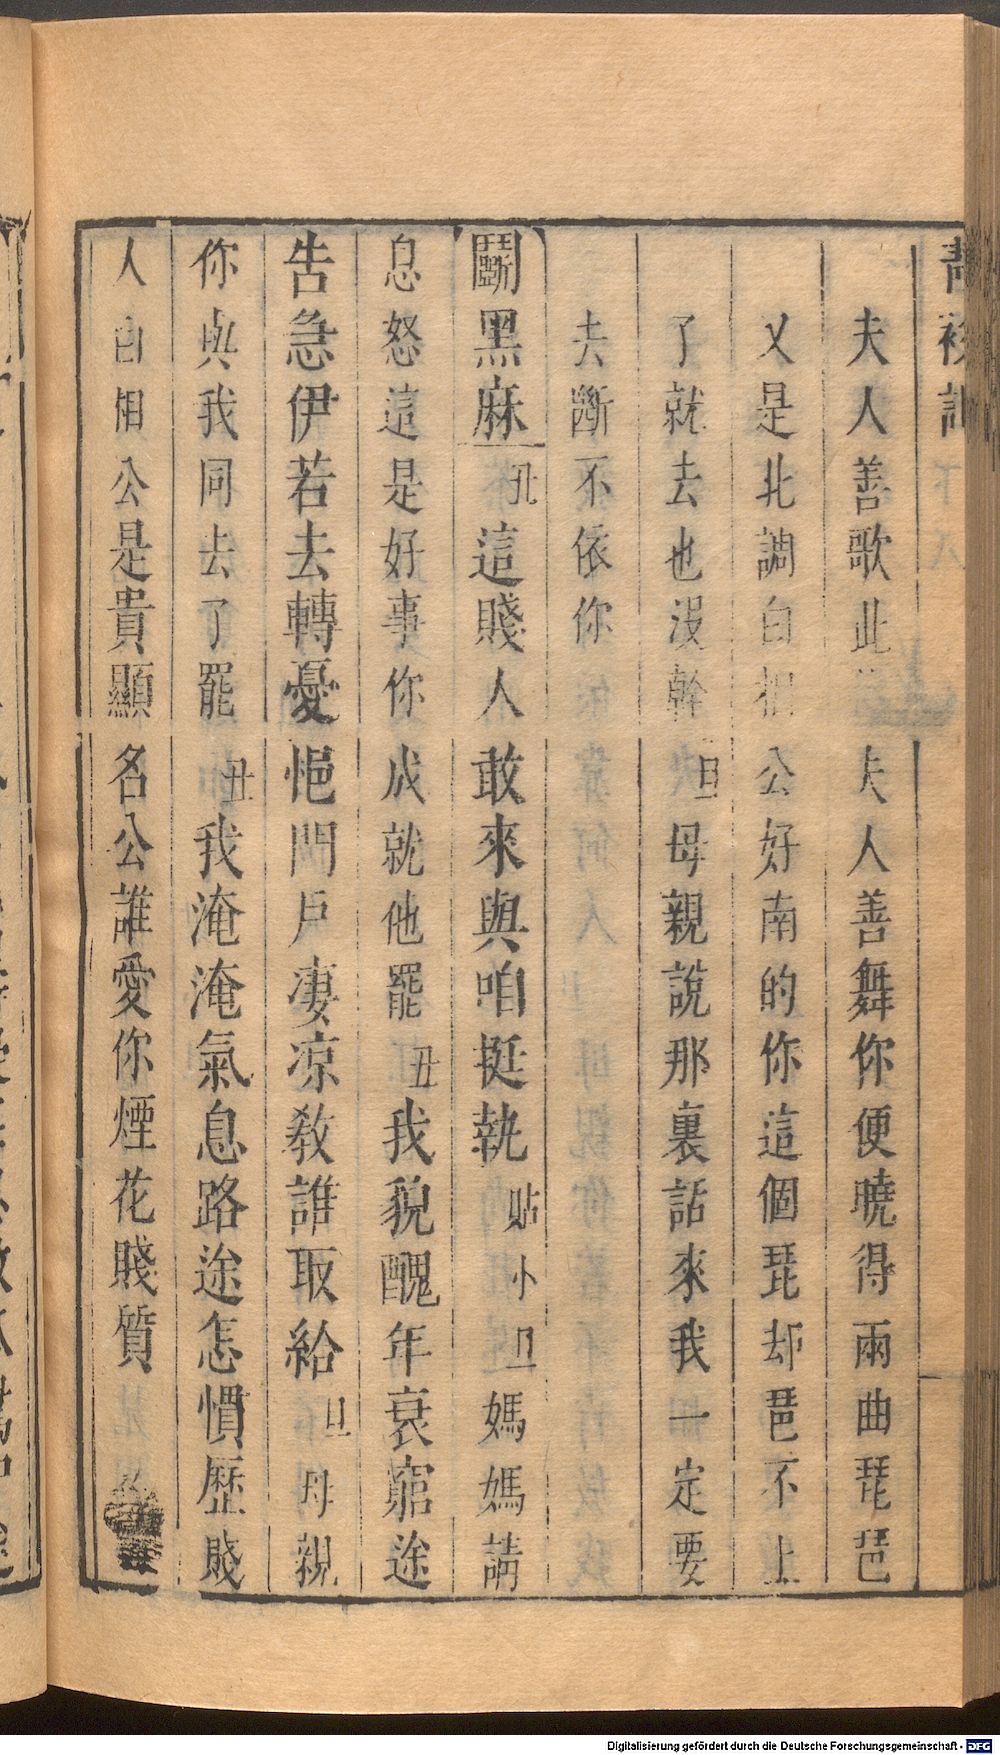 青衫記
夫人善歌此 夫人善舞你便曉得兩曲琵琶
又是北調白相公好南的你這個琵却琶不上
了就去也沒幹旦母親說那裏話來我一定要
去斷不依你
鬭黑麻丑這賤人敢來與咱挺執貼小旦媽媽請
息怒這是好事你成就他罷丑我貌醜年衰窮途
告急伊若去轉憂悒門戶凄凉教誰取給旦母親
你與我同去了罷丑我淹淹氣息路途怎慣歷賤
人白相公是貴顯名公誰愛你煙花賤質
Digitalisierung gefördert durch die Deutsche Forschungsgemeinschaft - DFG